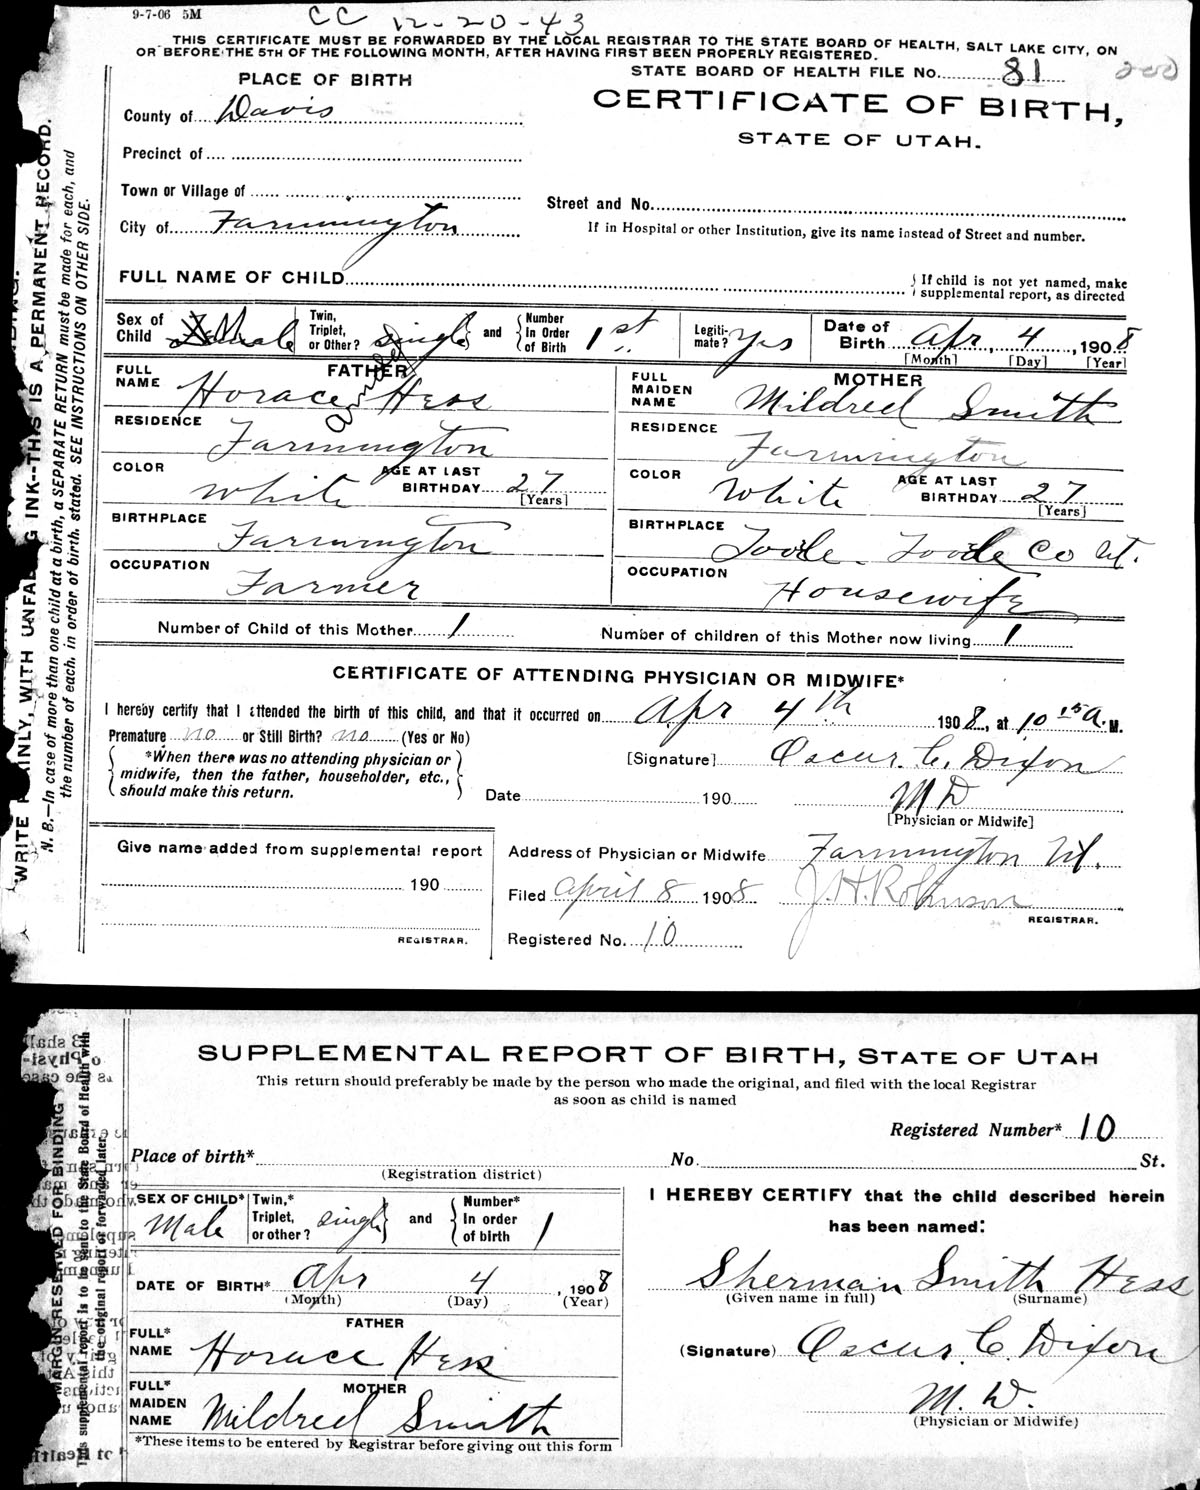 9-7-06 5M
CC 12-20-43
THIS CERTIFICATE MUST BE FORWARDED BY THE LOCAL REGISTRAR TO THE STATE BOARD OF HEALTH, SALT LAKE CITY, ON
OR BEFORE THE 5TH OF THE FOLLOWING MONTH, AFTER HAVING FIRST BEEN PROPERLY REGISTERED.
STATE BOARD OF HEALTH FILE No. 81
200
PLACE OF BIRTH
CERTIFICATE OF BIRTH,
STATE OF UTAH.
County of Davis
Precinct of
Town or Village of
City of Farmington
Street and No.
If in Hospital or other Institution, give its name instead of Street and number.
FULL NAME OF CHILD
{ If child is not yet named, make
supplemental report, as directed
Sex of Child Male
Twin, Triplet, or Other? Single and
Number In Order of Birth 1st
Legiti-mate? Yes
Date of Birth Apr, 4, 1908
[Month] [Day] [Year]
FATHER
FULL NAME Horace Hess
RESIDENCE Farmington
COLOR White
AGE AT LAST BIRTHDAY 27
[Years]
BIRTHPLACE Farmington
OCCUPATION Farmer
MOTHER
FULL MAIDEN NAME Mildred Smith
RESIDENCE Farmington
COLOR White
AGE AT LAST BIRTHDAY 27
[Years]
BIRTHPLACE Tooele. Tooele Co Ut.
OCCUPATION Housewife
Number of Child of this Mother 1
Number of children of this Mother now living 1
CERTIFICATE OF ATTENDING PHYSICIAN OR MIDWIFE*
I hereby certify that I attended the birth of this child, and that it occurred on Apr 4th 1908, at 10 15 A. M.
Premature no or Still Birth? no (Yes or No)
{ *When there was no attending physician or
midwife, then the father, householder, etc.,
should make this return. }
[Signature] Oscar. C. Dixon
Date 190 M D
[Physician or Midwife]
Give name added from supplemental report
190
REGISTRAR.
Address of Physician or Midwife Farmington Ut.
Filed April 8 1908 J. H. Robinson
REGISTRAR.
Registered No. 10
N. B.—In case of more than one child at a birth, a SEPARATE RETURN must be made for each, and
the number of each, in order of birth, stated. SEE INSTRUCTIONS ON OTHER SIDE.
SUPPLEMENTAL REPORT OF BIRTH, STATE OF UTAH
This return should preferably be made by the person who made the original, and filed with the local Registrar
as soon as child is named
Registered Number* 10
Place of birth* No. St.
(Registration district)
SEX OF CHILD* Male
Twin,* Triplet, or other? Single and
Number* In order of birth 1
DATE OF BIRTH* Apr 4, 1908
(Month) (Day) (Year)
FATHER
FULL* NAME Horace Hess
MOTHER
FULL* MAIDEN NAME Mildred Smith
*These items to be entered by Registrar before giving out this form
I HEREBY CERTIFY that the child described herein
has been named:
Sherman Smith Hess
(Given name in full) (Surname)
(Signature) Oscar. C. Dixon
M. D.
(Physician or Midwife)
MARGIN RESERVED FOR BINDING
This supplemental report is to be sent to the State Board of Health with
the original report or forwarded later